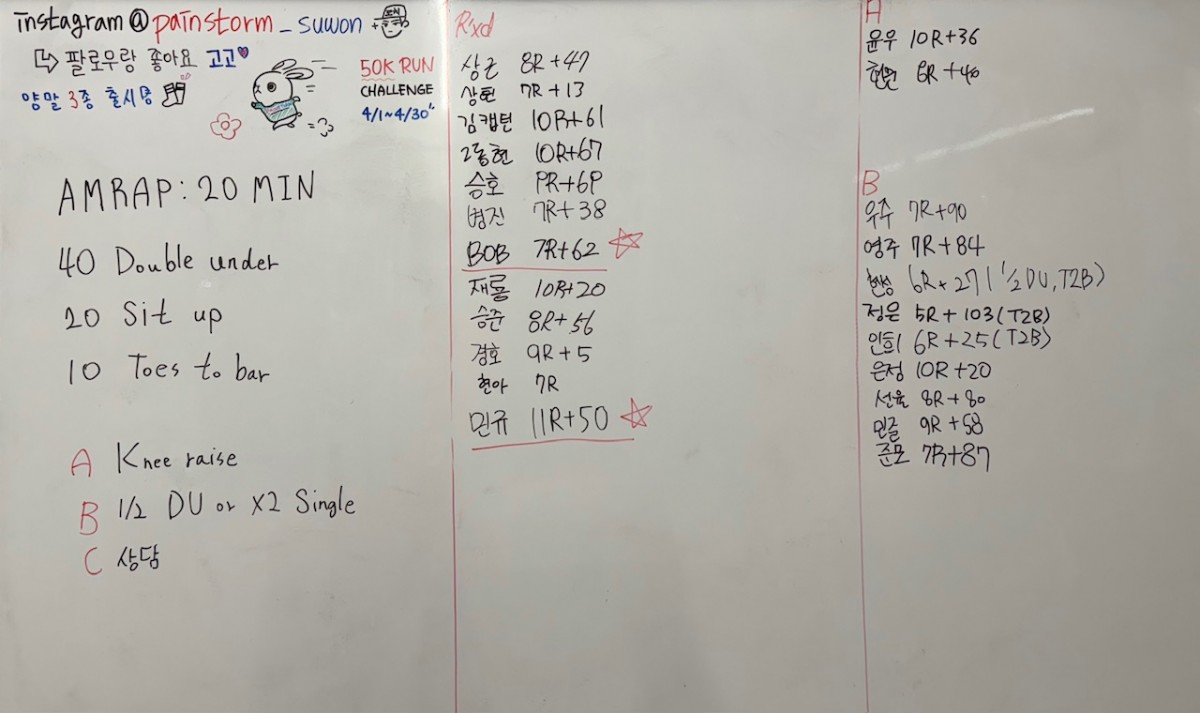 instagram @painstorm_suwon
↳ 팔로우랑 좋아요 고고♥
양말 3종 출시중
50K RUN
CHALLENGE
4/1~4/30"
AMRAP: 20 MIN
40 Double under
20 Sit up
10 Toes to bar
A Knee raise
B 1/2 DU or X2 Single
C 상담
R'xd
상근 8R+47
상현 7R+13
김캡틴 10R+61
2동현 10R+67
승호 9R+69
병진 7R+38
BOB 7R+62 ☆
재룡 10R+20
승준 8R+56
경호 9R+5
현아 7R
민규 11R+50 ☆
A
윤우 10R+36
6R+40
B
우주 7R+90
영주 7R+84
현성 6R+27 (1/2 DU, T2B)
정은 5R+103 (T2B)
민희 6R+25 (T2B)
은정 10R+20
선율 8R+80
9R+58
준모 7R+87